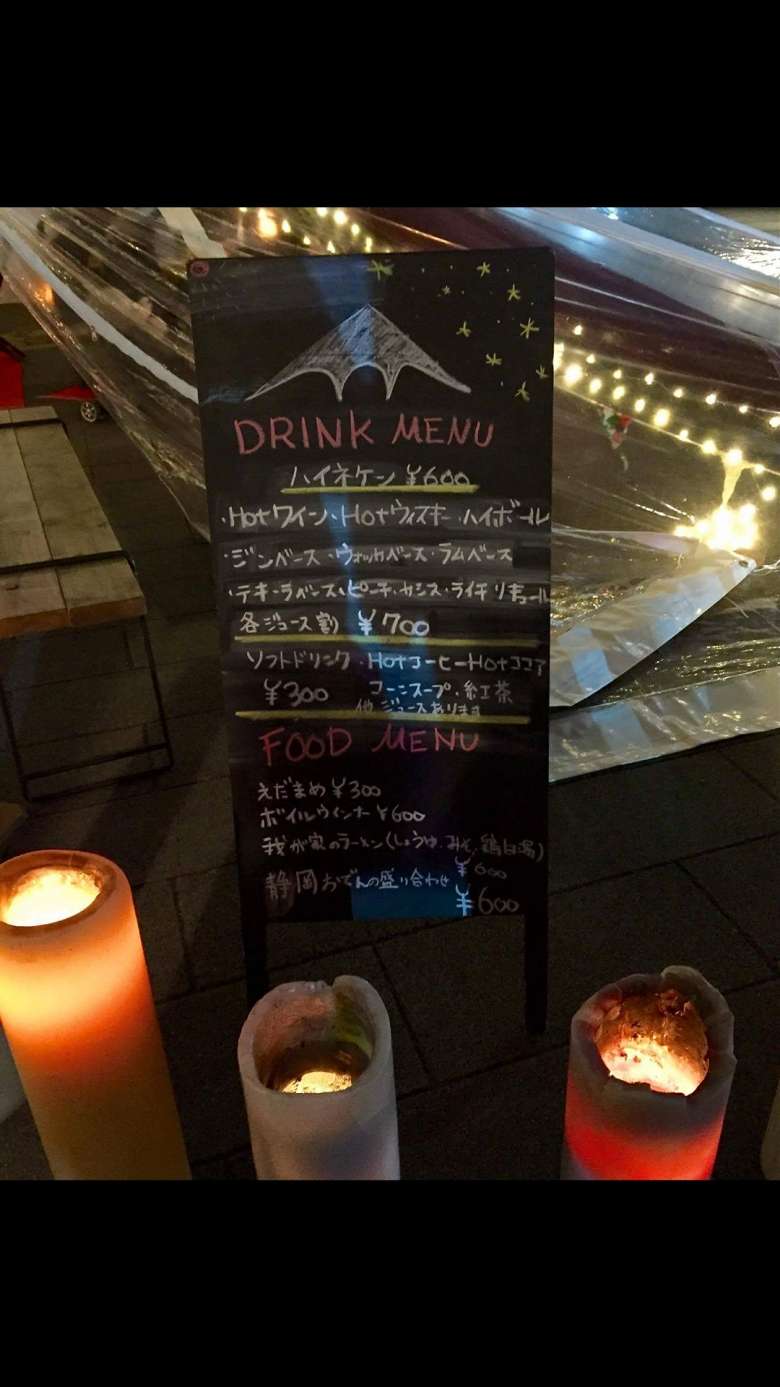 DRINK MENU
ハイネケン ¥600
・Hotワイン、Hotウィスキー・ハイボール
・ジンベース・ウォッカベース・ラムベース
・テキーラベース、ピーチ・カシス・ライチリキュール
各ジュース割 ¥700
ソフトドリンク・HotコーヒーHotココア
¥300 コーンスープ・紅茶
他ジュースあります
FOOD MENU
えだまめ ¥300
ボイルウインナー ¥600
我が家のラーメン(しょうゆ、みそ、鶏白湯)
¥600
静岡おでんの盛り合わせ
¥600